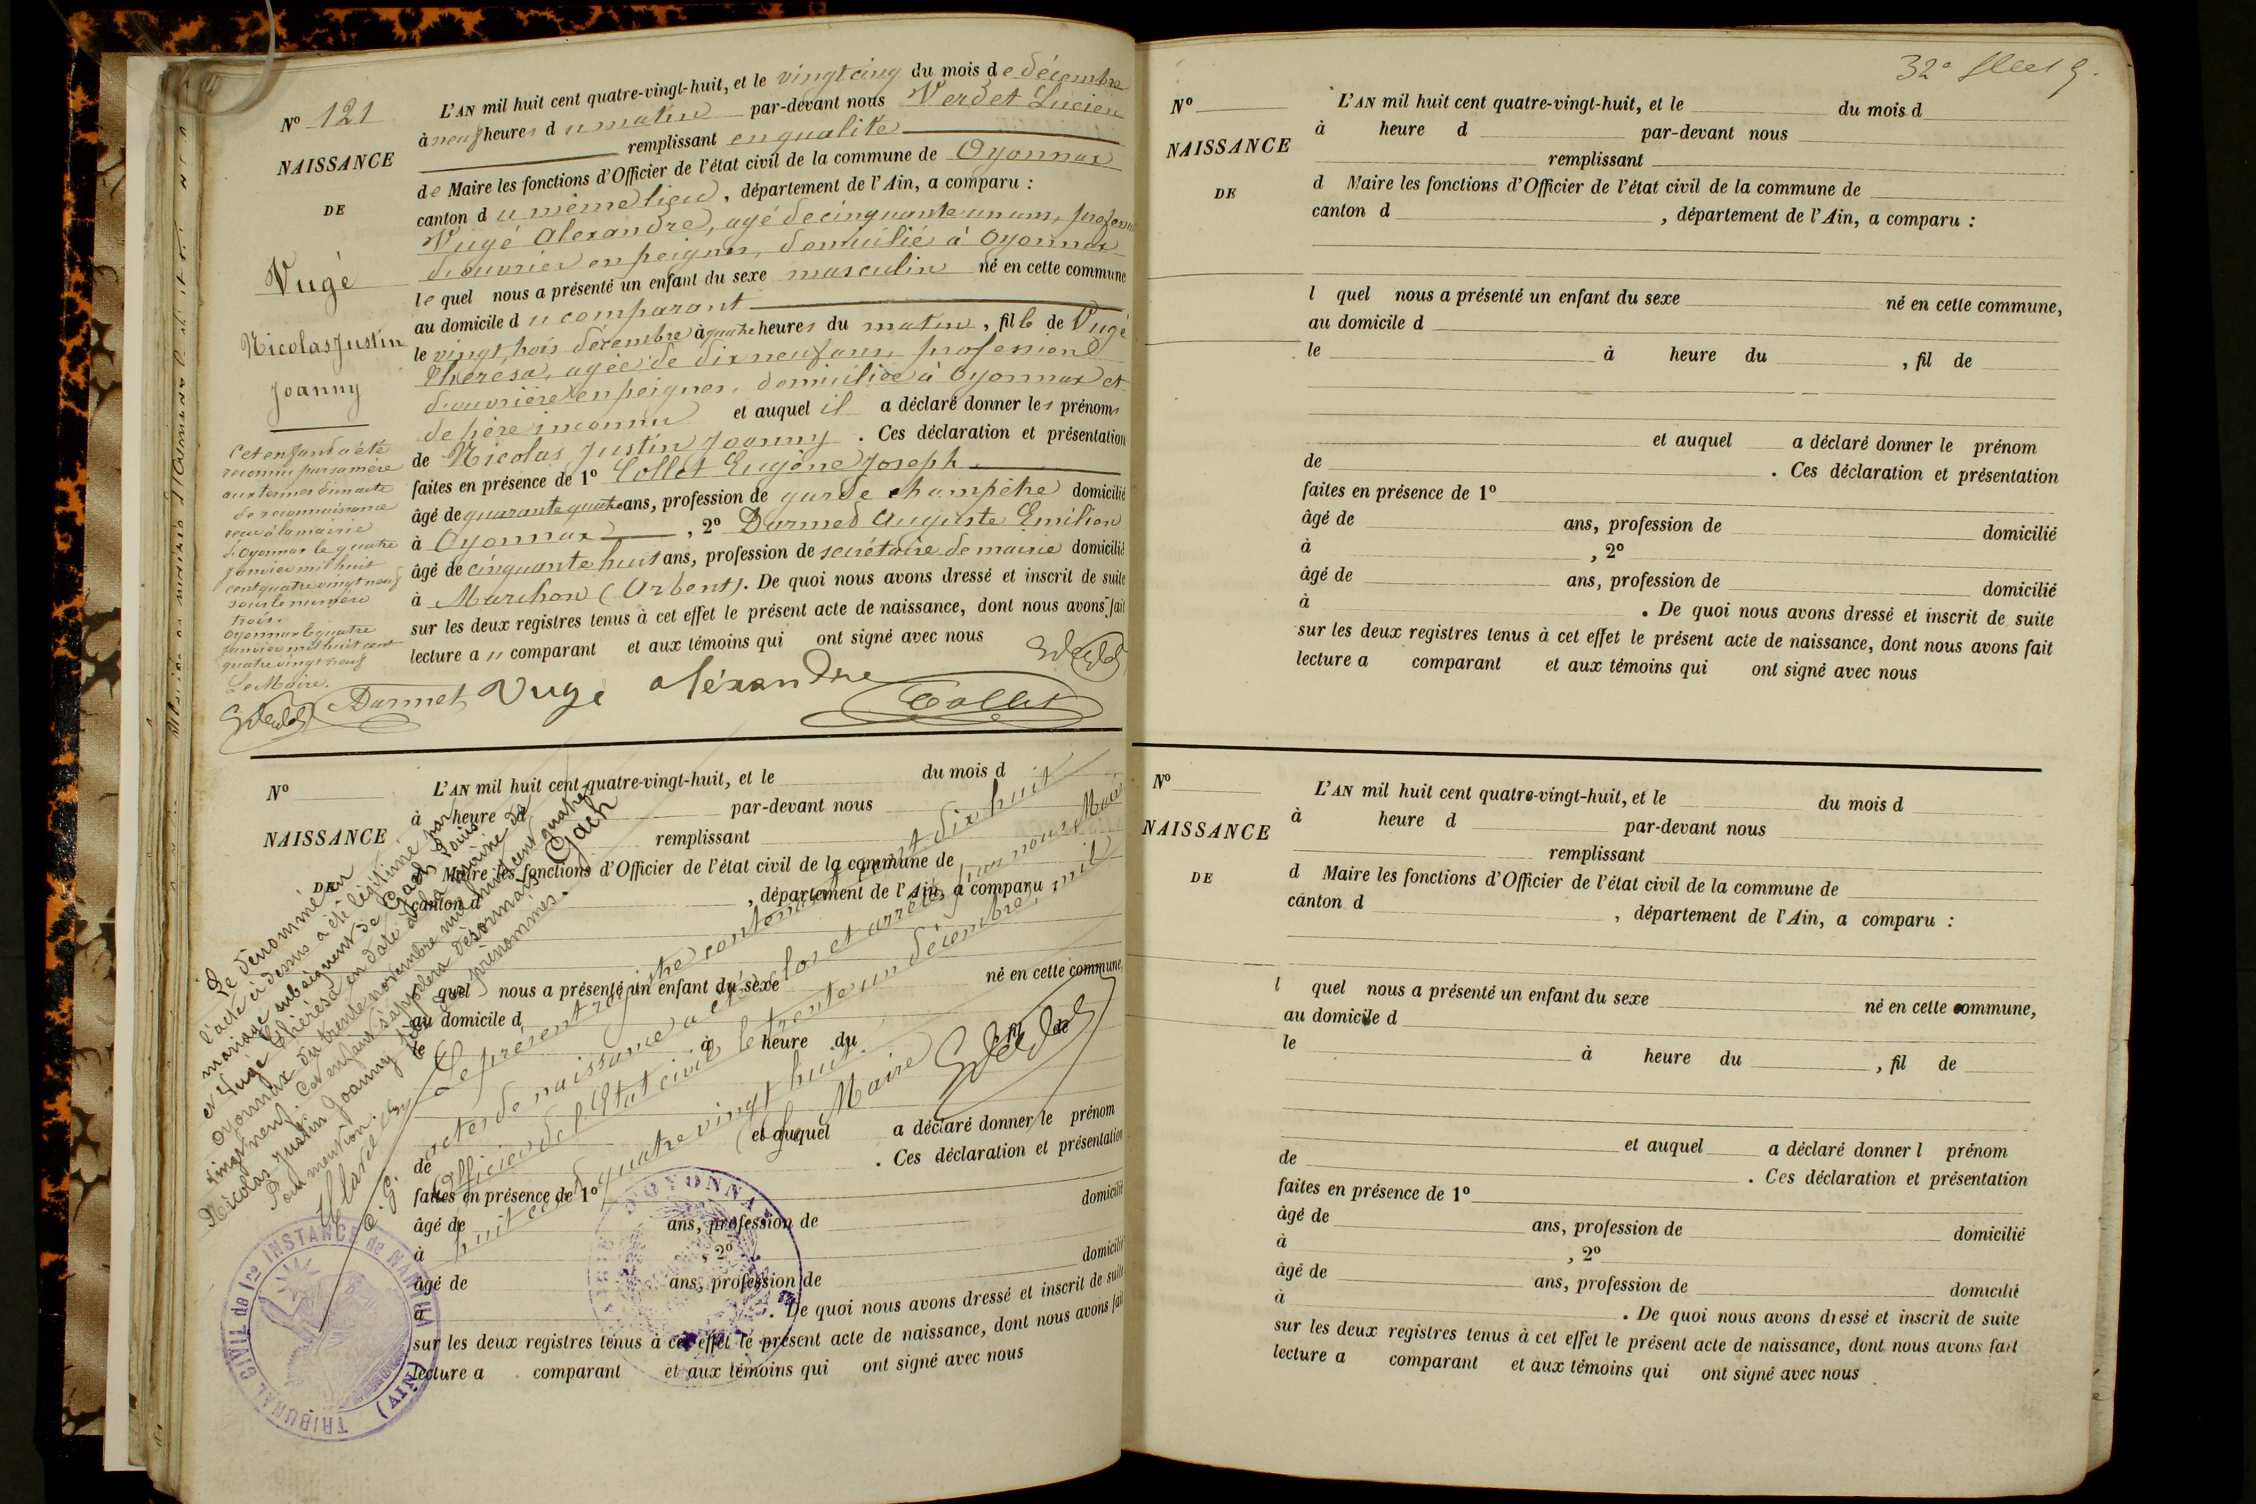 Nº 121
NAISSANCE
DE
Vugé
Nicolas Justin
Joanny
L'AN mil huit cent quatre-vingt-huit, et le vingt cinq du mois de décembre
à neuf heures du matin par-devant nous Verdet Lucien
remplissant en qualité
de Maire les fonctions d'Officier de l'état civil de la commune de Oyonnax
canton du même lieu, département de l'Ain, a comparu :
Vugé Alexandre, agé de cinquante un ans, profession
d'ouvrier en peignes, domicilié à Oyonnax
lequel nous a présenté un enfant du sexe masculin né en cette commune
au domicile du comparant
le vingt trois décembre à quatre heures du matin, fils de Vugé
Thérésa, agée de dix neuf ans, profession
d'ouvrière en peignes, domiciliée à Oyonnax et
de père inconnu et auquel il a déclaré donner les prénoms
de Nicolas Justin Joanny. Ces déclaration et présentation
faites en présence de 1º Collet Eugène Joseph
âgé de quarante quatre ans, profession de garde champêtre domicilié
à Oyonnax, 2º Darmed Auguste Emilien
âgé de cinquante huit ans, profession de secrétaire de mairie domicilié
à Marchon (Arbent). De quoi nous avons dressé et inscrit de suite
sur les deux registres tenus à cet effet le présent acte de naissance, dont nous avons fait
lecture au comparant et aux témoins qui ont signé avec nous
Cet enfant a été
reconnu par sa mère
aux termes d'un acte
de reconnaissance
reçu à la mairie
d'Oyonnax le quatre
janvier mil huit
cent quatre vingt neuf
sous le numéro
trois.
Oyonnax le quatre
janvier mil huit cent
quatre vingt neuf
Le Maire.
Darmet Vugé aléxandre
Collet
Nº
NAISSANCE
DE
L'AN mil huit cent quatre-vingt-huit, et le du mois d
à heure d par-devant nous
remplissant
d Maire les fonctions d'Officier de l'état civil de la commune de
canton d , département de l'Ain, a comparu :
l quel nous a présenté un enfant du sexe né en cette commune,
au domicile d
le à heure du , fil de
et auquel a déclaré donner le prénom
de . Ces déclaration et présentation
faites en présence de 1º
âgé de ans, profession de domicilié
à , 2º
âgé de ans, profession de domicilié
à . De quoi nous avons dressé et inscrit de suite
sur les deux registres tenus à cet effet le présent acte de naissance, dont nous avons fait
lecture a comparant et aux témoins qui ont signé avec nous
Le dénommé en
l'acte ci dessus a été légitimé par
mariage subséquent de Gach Louis
et Vugé Thérésa en date à la mairie de
Oyonnax du trente novembre mil huit cent quatre
vingt neuf. Cet enfant s'appellera désormais Gach
Nicolas Justin Joanny
Pour mention.
Le présent registre contenant cent dix huit
actes de naissance a été clos et arrêté par nous, Maire
Officier de l'Etat civil le trente un décembre, mil
huit cent quatre vingt huit.
Le Maire
TRIBUNAL CIVIL de 1re INSTANCE de NANTUA (AIN)
D'OYONNAX
32e
Nº
NAISSANCE
DE
L'AN mil huit cent quatre-vingt-huit, et le du mois d
à heure d par-devant nous
remplissant
d Maire les fonctions d'Officier de l'état civil de la commune de
canton d , département de l'Ain, a comparu :
l quel nous a présenté un enfant du sexe né en cette commune,
au domicile d
le à heure du , fil de
et auquel a déclaré donner le prénom
de . Ces déclaration et présentation
faites en présence de 1º
âgé de ans, profession de domicilié
à , 2º
âgé de ans, profession de domicilié
à . De quoi nous avons dressé et inscrit de suite
sur les deux registres tenus à cet effet le présent acte de naissance, dont nous avons fait
lecture a comparant et aux témoins qui ont signé avec nous
Nº
NAISSANCE
DE
L'AN mil huit cent quatre-vingt-huit, et le du mois d
à heure d par-devant nous
remplissant
d Maire les fonctions d'Officier de l'état civil de la commune de
canton d , département de l'Ain, a comparu :
l quel nous a présenté un enfant du sexe né en cette commune,
au domicile d
le à heure du , fil de
et auquel a déclaré donner l prénom
de . Ces déclaration et présentation
faites en présence de 1º
âgé de ans, profession de domicilié
à , 2º
âgé de ans, profession de domicilié
à . De quoi nous avons dressé et inscrit de suite
sur les deux registres tenus à cet effet le présent acte de naissance, dont nous avons fait
lecture a comparant et aux témoins qui ont signé avec nous